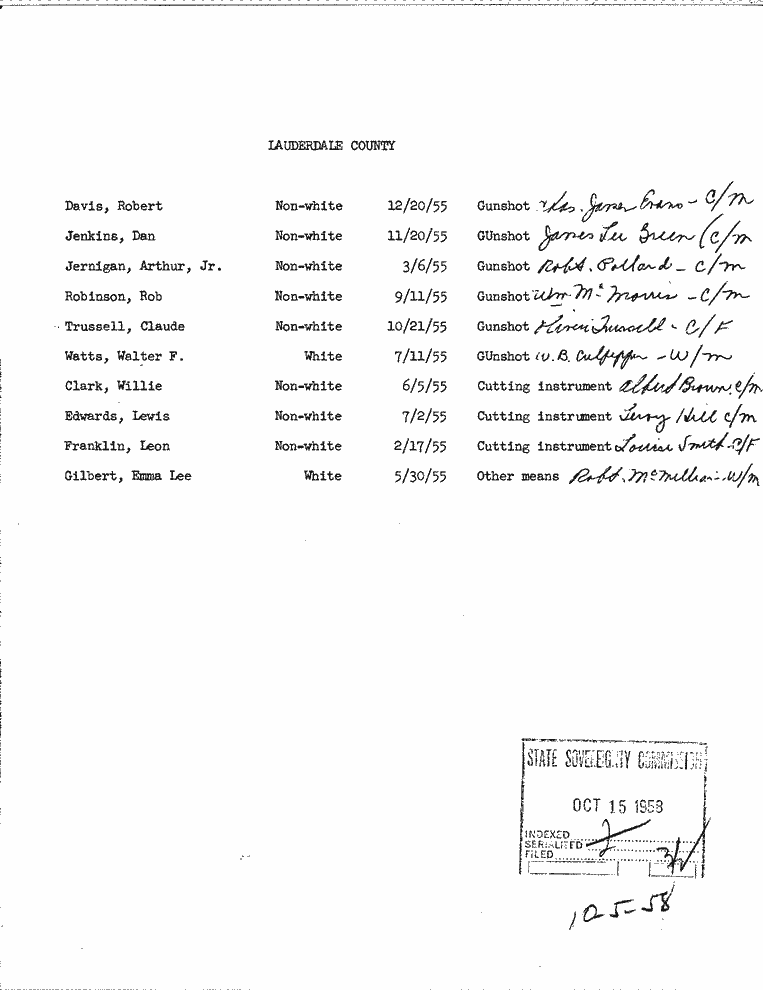 LAUDERDALE COUNTY
Davis, Robert Non-white 12/20/55 Gunshot James Evans - C/M
Jenkins, Dan Non-white 11/20/55 GUnshot James Lee Green (C/M
Jernigan, Arthur, Jr. Non-white 3/6/55 Gunshot Robt. Pollard - C/M
Robinson, Rob Non-white 9/11/55 Gunshot Wm. Mc Morris - C/M
Trussell, Claude Non-white 10/21/55 Gunshot Trussell - C/F
Watts, Walter F. White 7/11/55 GUnshot W.B. Culpepper - W/M
Clark, Willie Non-white 6/5/55 Cutting instrument Albert Brown, C/M
Edwards, Lewis Non-white 7/2/55 Cutting instrument Leroy Hill C/M
Franklin, Leon Non-white 2/17/55 Cutting instrument Louise Smith - C/F
Gilbert, Emma Lee White 5/30/55 Other means Robt. McMillian - W/M
STATE SOVEREIGNTY COMMISSION
OCT 15 1958
INDEXED
SERIALIZED 2
FILED
10-5-58